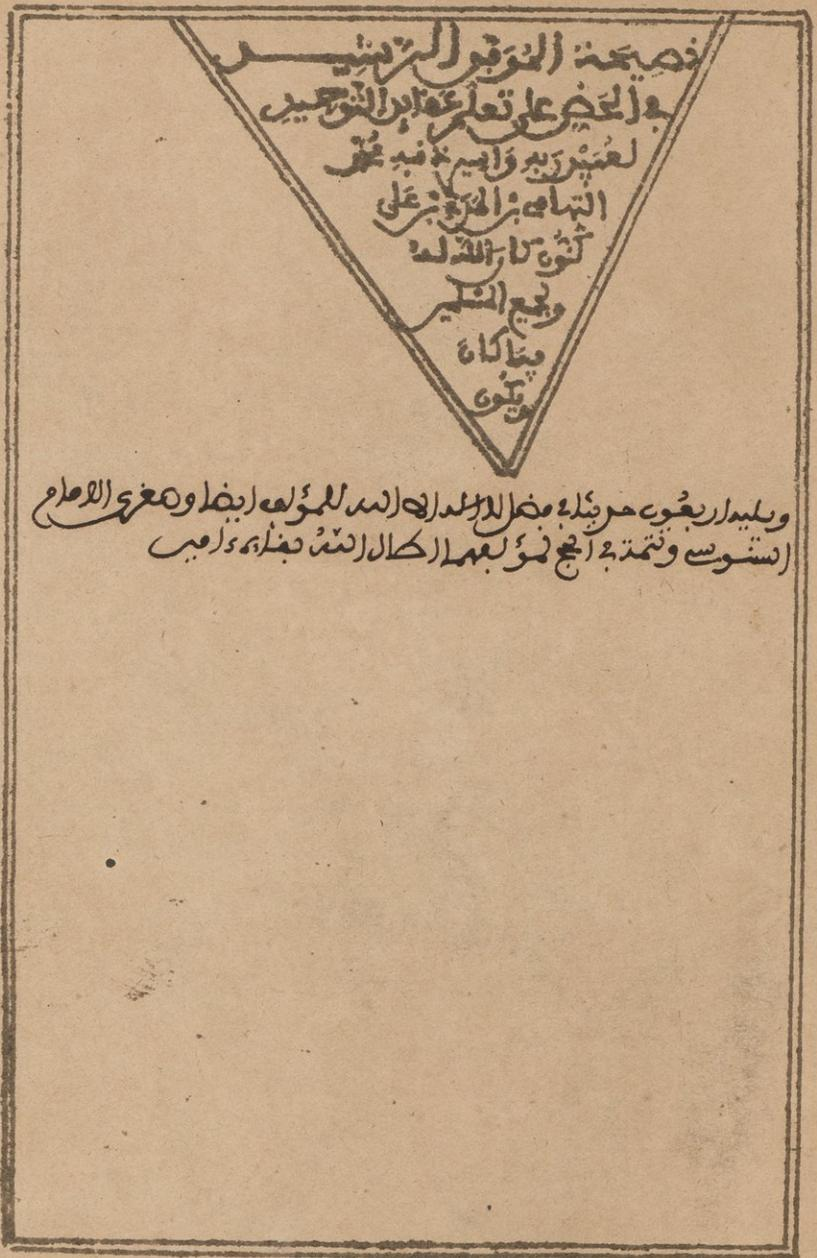 نصيحة الموفق الرشيد
في الحض على تعلم عقايد التوحيد
لعبيد ربه وأسير ذنبه محمد
التهامي بن المدني بن علي
كنون كان الله له
ولجميع المسلمين
فيما كان
ويكون
ويليه اربعون حديثا في فضل لا اله الا الله للمؤلف ايضا وصغرى الامام
السنوسي وتتمة في الحج لمؤلفهما اطال الله بقاءه ءامين